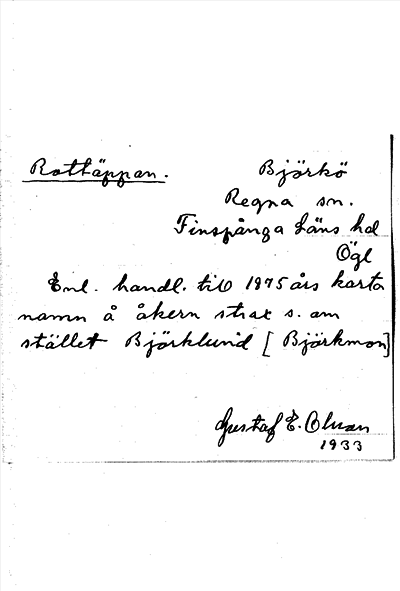 Rottäppan. Björkö
Regna sn.
Finspånga läns hd
Ögl
Enl. handl. till 1875 års karta
namn å åkern strax s. om
stället Björklund [Björkmon]
Gustaf E. Olson
1933